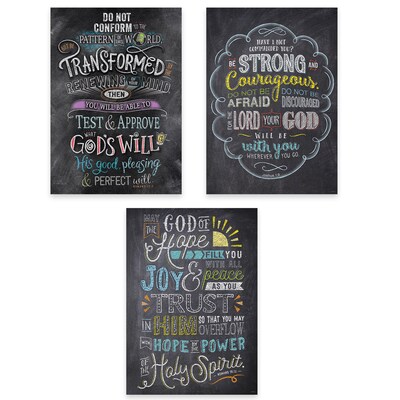 DO NOT
CONFORM TO THE
PATTERN OF THIS WORLD,
BUT BE
TRANSFORMED
BY THE
RENEWING OF YOUR MIND
THEN
YOU WILL BE ABLE TO
TEST & APPROVE
WHAT
GOD'S WILL IS
His good, pleasing
& PERFECT will.
HAVE I NOT
COMMANDED YOU?
BE STRONG AND
Courageous.
DO NOT BE AFRAID
DO NOT BE DISCOURAGED
FOR THE LORD YOUR GOD
WILL BE
with you
WHEREVER YOU GO.
MAY THE GOD OF
Hope
FILL YOU
WITH ALL
JOY & peace
AS YOU
TRUST
IN HIM SO THAT YOU MAY
OVERFLOW
WITH HOPE BY THE POWER
OF THE Holy Spirit.